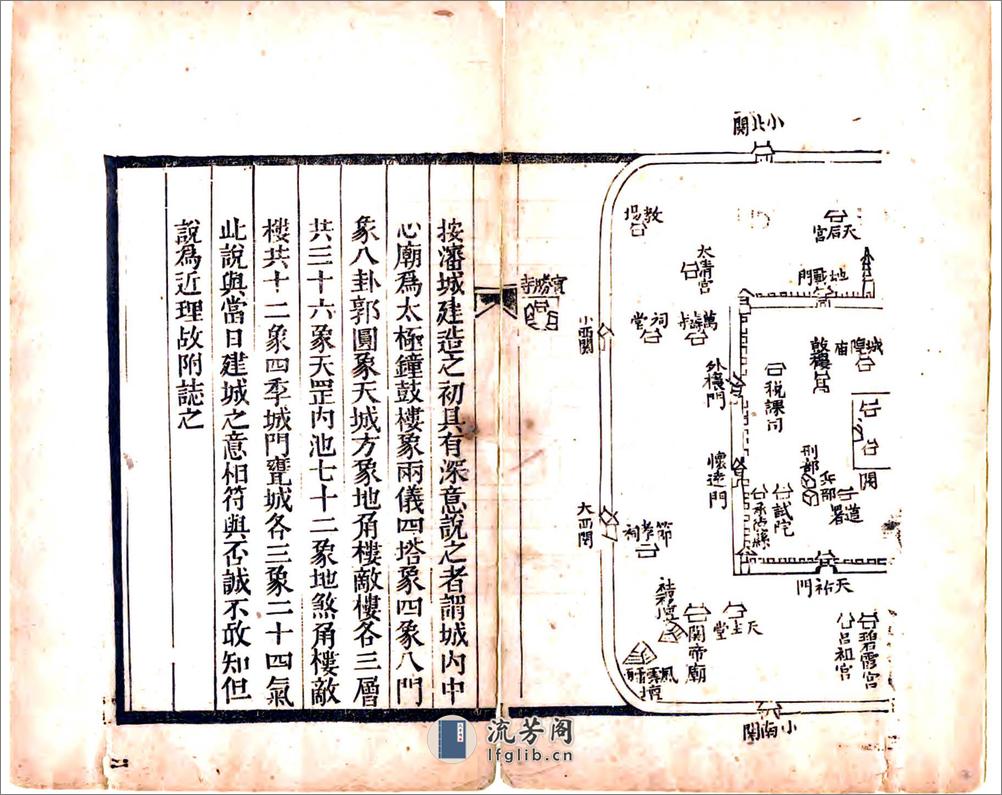 小北關
教場
天后宮
太清宮
地載門
寶勝寺
祠堂
萬壽寺
小西關
城隍庙
鼓樓
外攘門
稅課司
懷遠門
刑部
兵部
道署
試院
承德縣
大西關
節孝祠
天祐門
社稷壇
天主堂
關帝廟
風雲雷雨壇
碧霞宮
呂祖宮
小南關
按瀋城建造之初具有深意說之者謂城內中
心廟爲太極鐘鼓樓象兩儀四塔象四象八門
象八卦郭圓象天城方象地角樓敵樓各三層
共三十六象天罡內池七十二象地煞角樓敵
樓共十二象四季城門甕城各三象二十四氣
此說與當日建城之意相符與否誠不敢知但
說爲近理故附誌之
二
流芳阁
lfglib.cn